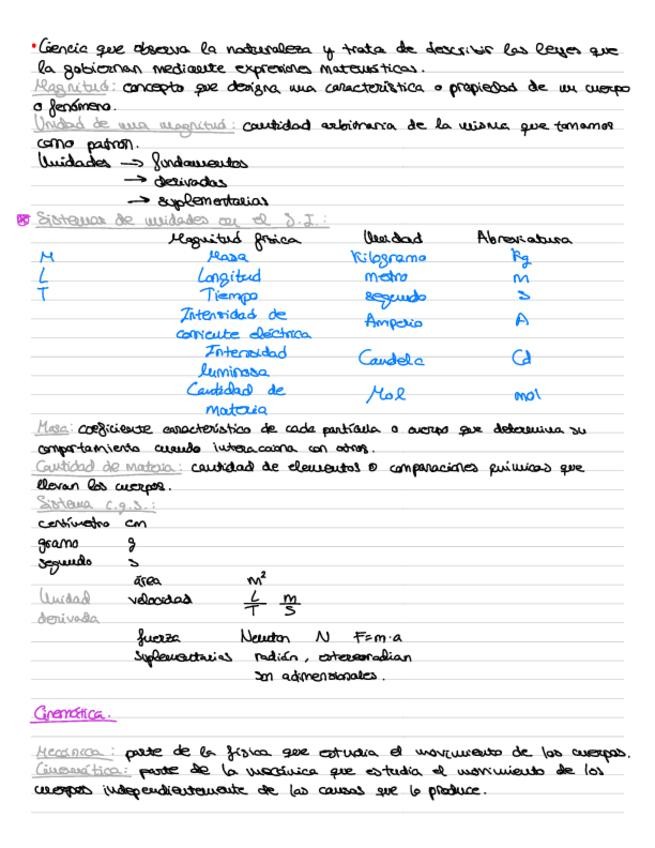 • Ciencia que observa la naturaleza y trata de describir las leyes que
la gobiernan mediante expresiones matemáticas.
Magnitud: concepto que designa una característica o propiedad de un cuerpo
o fenómeno.
Unidad de una magnitud: cantidad arbitraria de la misma que tomamos
como patrón.
Unidades → fundamentos
→ derivadas
→ suplementarias
Sistemas de unidades en el S.I.:
Magnitud física Unidad Abreviatura
M Masa Kilogramo kg
L Longitud metro m
T Tiempo segundo s
Intensidad de
corriente eléctrica Amperio A
Intensidad
luminosa Candela Cd
Cantidad de
materia Mol mol
Masa: coeficiente característico de cada partícula o cuerpo que determina su
comportamiento cuando interacciona con otros.
Cantidad de materia: cantidad de elementos o comparaciones químicas que
llevan los cuerpos.
Sistema c.g.s.:
centímetro cm
gramo g
segundo s
área m²
Unidad derivada velocidad L/T m/s
fuerza Newton N F=m·a
suplementarias radián, estereoradian
son adimensionales.
Cinemática.
Mecánica: parte de la física que estudia el movimiento de los cuerpos.
Cinemática: parte de la mecánica que estudia el movimiento de los
cuerpos independientemente de las causas que lo produce.